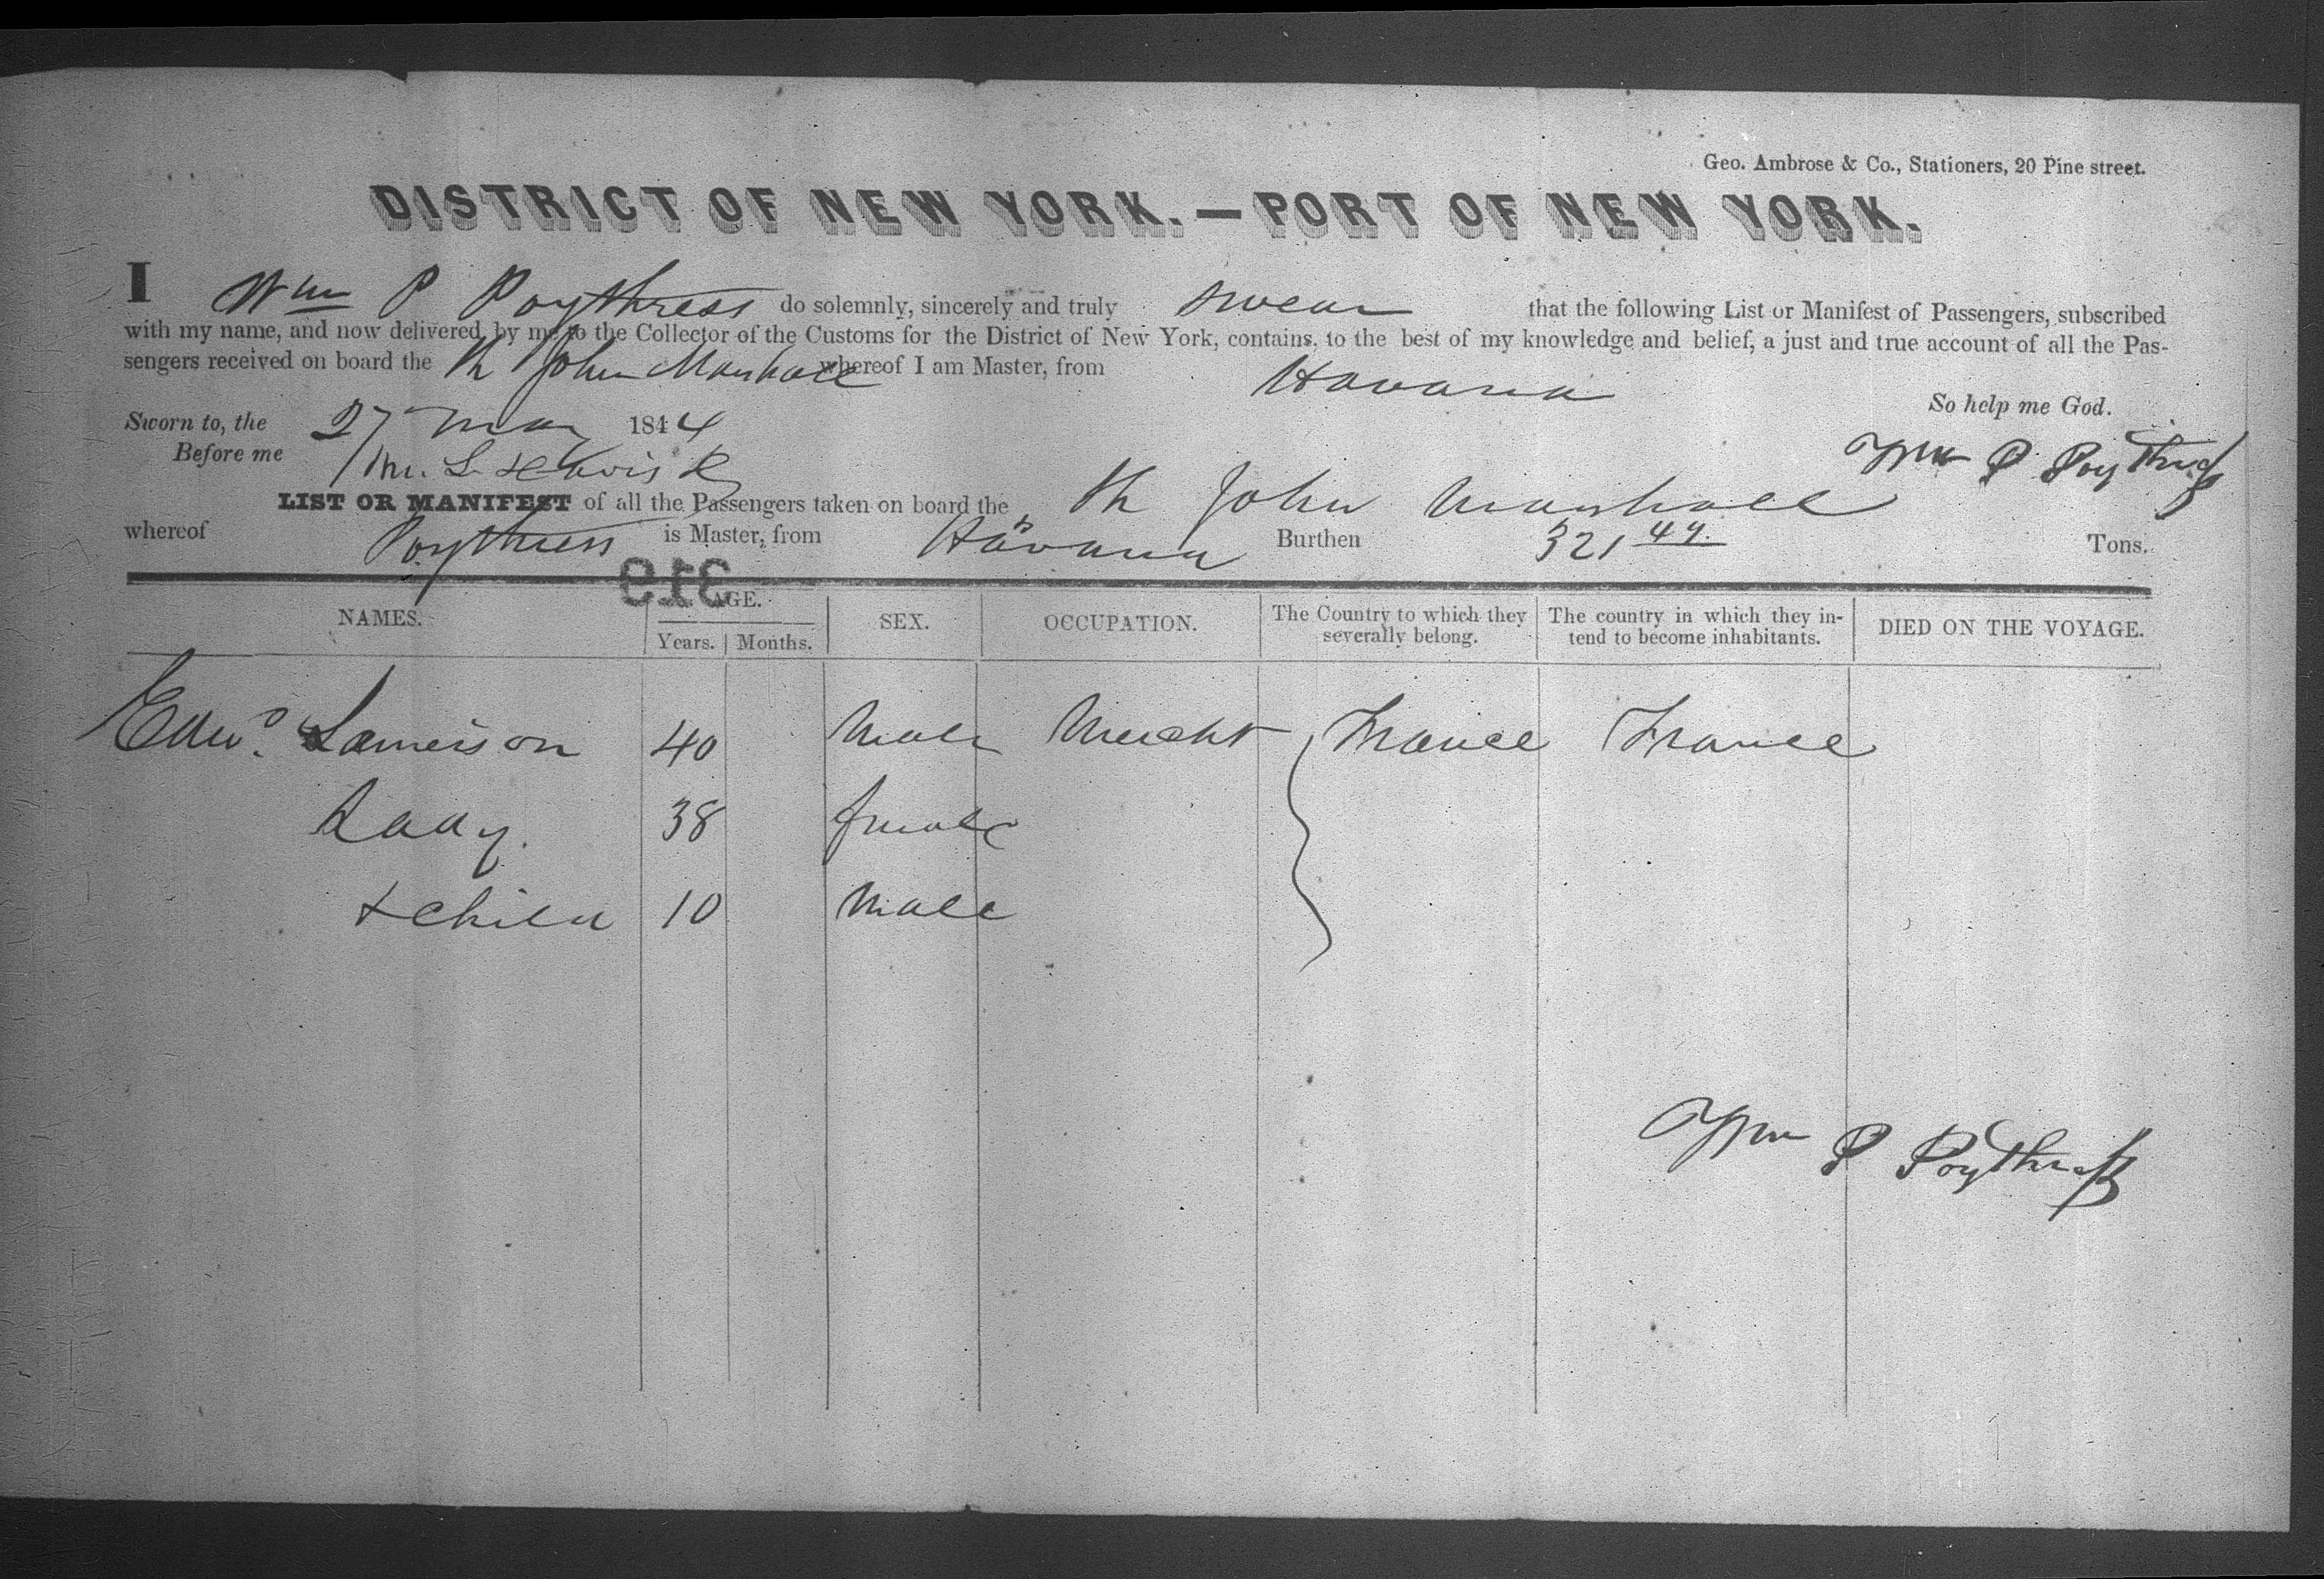 Geo. Ambrose & Co., Stationers, 20 Pine street.
DISTRICT OF NEW YORK.—PORT OF NEW YORK.
I Wm P Poythress do solemnly, sincerely and truly swear that the following List or Manifest of Passengers, subscribed
with my name, and now delivered by me to the Collector of the Customs for the District of New York, contains, to the best of my knowledge and belief, a just and true account of all the Pas-
sengers received on board the John Marshall whereof I am Master, from Havana
So help me God.
Sworn to, the 27 May 1844
Before me
Wm P Poythress
LIST OR MANIFEST of all the Passengers taken on board the John Marshall
whereof Poythress is Master, from Havana Burthen 321 49 Tons.
319
NAMES. AGE. SEX. OCCUPATION. The Country to which they severally belong. The country in which they in-tend to become inhabitants. DIED ON THE VOYAGE.
Years. Months.
Edwd. 40 Male Mercht France France
Lady. 38 female
& child 10 Male
Wm P Poythress